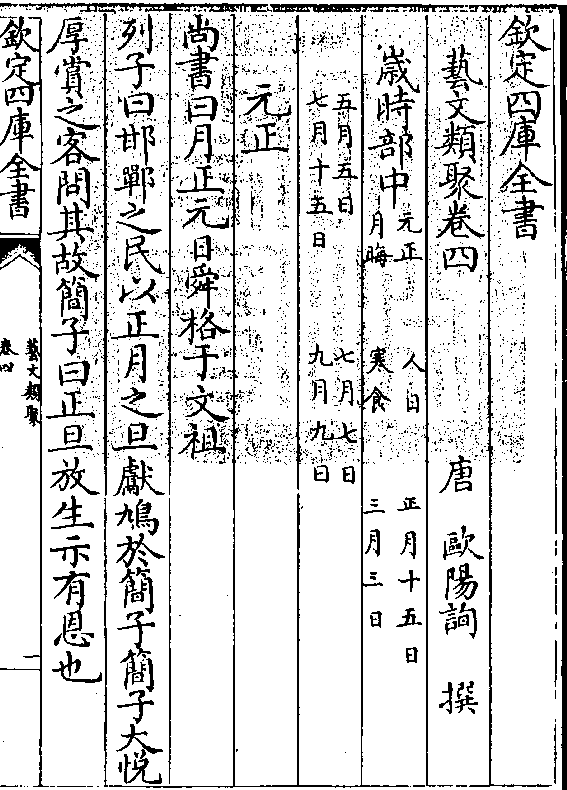 欽定四庫全書
藝文類聚卷四
唐 歐陽詢 撰
歲時部中 元正 人日 正月十五日
月晦 寒食 三月三日
五月五日 七月七日
七月十五日 九月九日
元正
尚書曰月正元日舜格于文祖
列子曰邯鄲之民以正月之旦獻鳩於簡子簡子大悅
厚賞之客問其故簡子曰正旦放生示有恩也
欽定四庫全書
藝文類聚
卷四
一